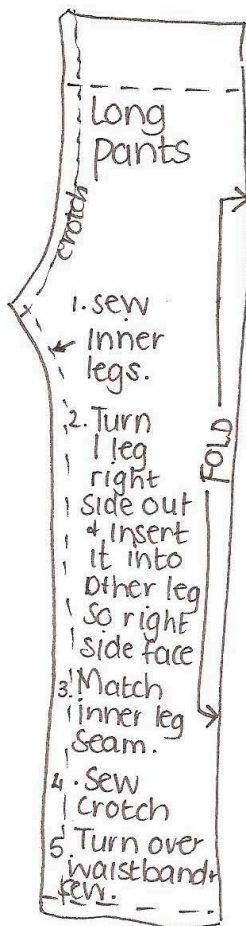 Long
pants
crotch
1. sew
inner
legs.
2. Turn
1 leg
right
side out
+ insert
it into
other leg
so right
side face
3. Match
inner leg
seam.
4. Sew
crotch
5. Turn over
waistband +
sew.
FOLD